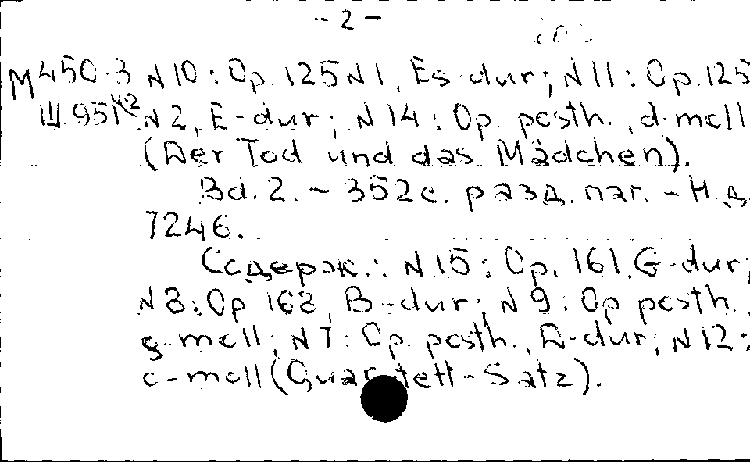 - 2 -
М450-3 N10: Op. 125 N1, Es-dur; N11: Op. 125
Ш951 К2 N2, E-dur; N14: Op. posth., d-moll
(Der Tod und das Mädchen).
Bd. 2. - 352 с. разд. паг. - Н.д.
7246.
Содерж.: N15: Op. 161, G-dur;
N8: Op 168, B-dur; N9: Op posth.,
g-moll; N7: Op. posth., D-dur; N12:
c-moll (Quartett-Satz).